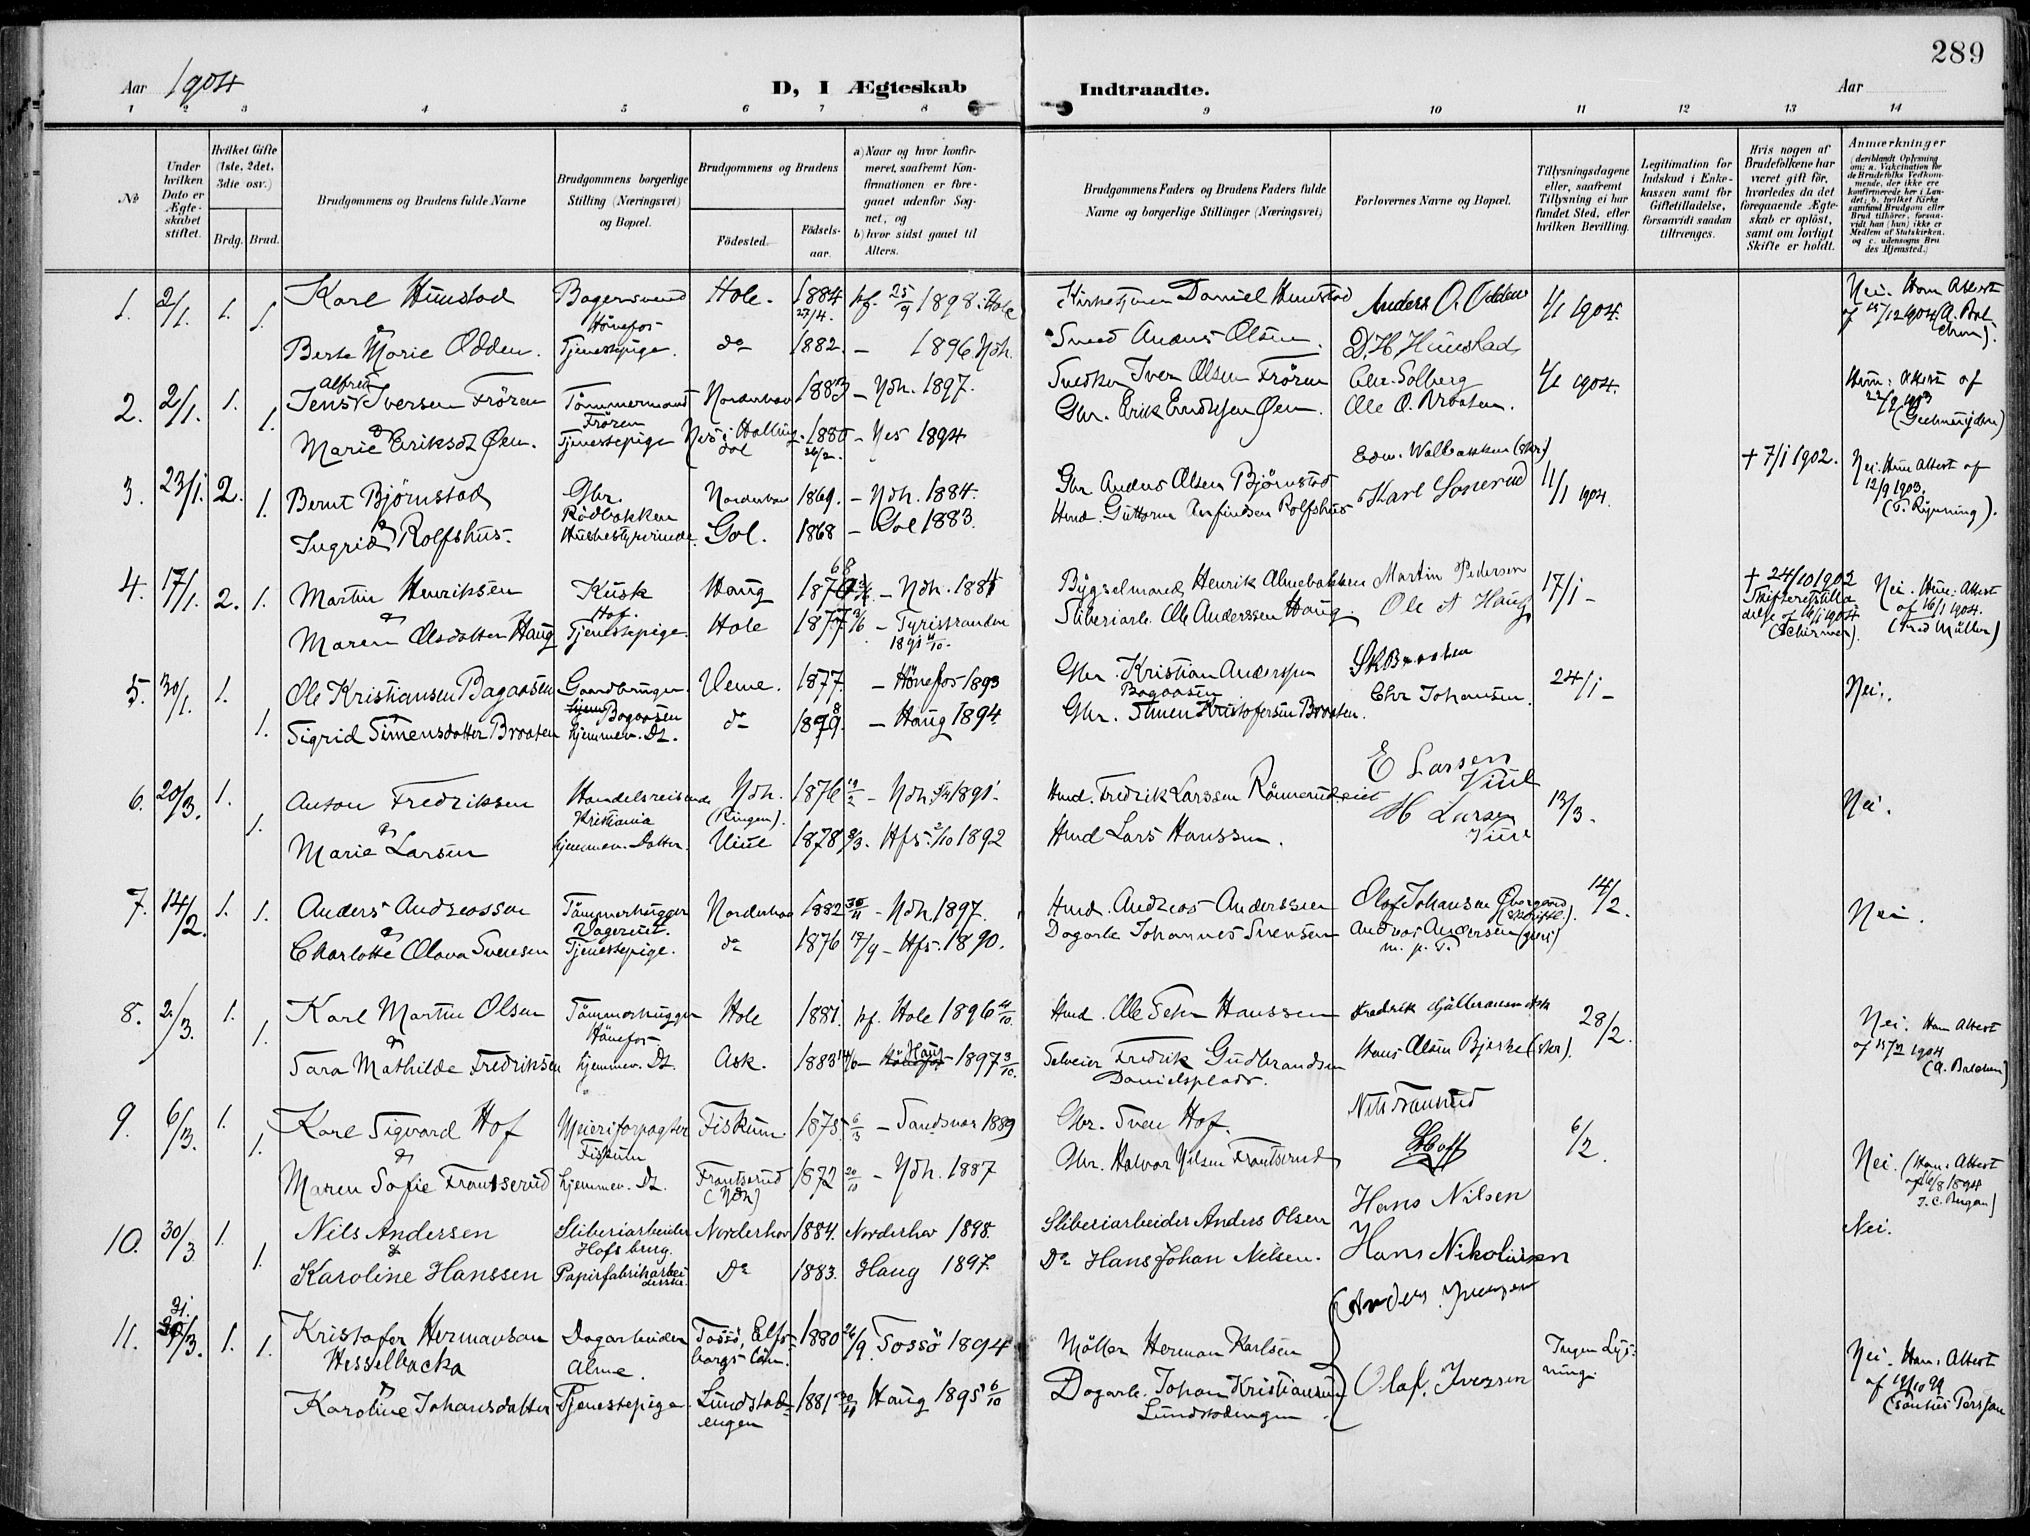 289
Aar 1904 D, I Ægteskab Indtraadte. Aar
1 2 3 4 5 6 7 8 9 10 11 12 13 14
№
Under hvilken Dato er Ægteskabet stiftet.
Hvilket Gifte (1ste, 2det, 3die osv.)
Brdg. Brud.
Brudgommens og Brudens fulde Navne
Brudgommens borgerlige Stilling (Næringsvei) og Bopæl.
Brudgommens og Brudens
Fødested. Fødselsaar.
a) Naar og hvor konfirmeret, saafremt Konfirmationen er foregaaet udenfor Sognet, og
b) hvor sidst gaaet til Alters.
Brudgommens Faders og Brudens Faders fulde Navne og borgerlige Stillinger (Næringsvei)
Forlovernes Navne og Bopæl.
Tillysningsdagene eller, saafremt Tillysning ei har fundet Sted, efter hvilken Bevilling.
Legitimation for Indskud i Enkekassen samt for Giftetilladelse, forsaavidt saadan tiltrænges.
Hvis nogen af Brudefolkene har været gift før, hvorledes da det foregaaende Ægteskab er opløst, samt om lovligt Skifte er holdt.
Anmærkninger (deriblandt Oplysning om: a. Vakcination for de Brudefolks Vedkommende, der ikke ere konfirmerede her i Landet; b. hvilket Kirkesamfund Brudgom eller Brud tilhører, forsaavidt han (hun) ikke er Medlem af Statskirken, og c. udensogns Brudes Hjemsted.)
1. 2/1. 1. 1. Karl Hunstad Bagersvend Hole. 1884 27/4. kf. 25/9 1898. Hole Kirketjener Daniel Hunstad Anders O. Odden 1/1 1904. Nei. Ham Attest
& Hønefos af 15/12 1904 (A. Bal
Berte Marie Odden. Tjenestepige. do 1882. – 1896 Ndh. Smed Anders Olsen. D. H. Hunstad chen).
2. 2/1. 1. 1. Jens Alfred Iversen Frøren Tømmermand Norderhov 1883 – Ndh. 1897. Snedker Iver Olsen Frøren Chr. Solberg 1/1 1904. Hun: Attest af
& Frøren 22/9 1903
Marie Eriksdt Øen. Tjenestepige Nes i Hallingdal 1880 26/2. – Nes 1894 Gbr. Erik Øen. Ole O. Braaten.
3. 23/1. 2. 1. Bernt Bjørnstad Gbr. Norderhov 1869. – Ndh. 1884. Gbr Anders Olsen Bjørnstad Karl Sonerud 11/1 1904. † 7/1 1902. Nei. Hun Attest af
& Rødbakken 12/9 1903.
Ingrid Rolfshus. Husbestyrerinde. Gol. 1868 – Gol 1883. Hmd. Guttorm Rolfshus
4. 17/1. 2. 1. Martin Henriksen Kusk Haug 1870 68 – Ndh. 1884 Bygselmand Henrik Almebakken Martin Pedersen 17/1 – † 24/10 1902 Nei. Hun: Attest
& Hof. Skifteretstilla af 16/1 1904.
Maren Olsdatter Haug Tjenestepige. Hole 1877 – Tyristranden 1891 4/10. Sliberiarb. Ole Anderssen Haug. Ole A Haug delse af 16/1 1904 (Schirmer).
5. 30/1. 1. 1. Ole Kristiansen Bagaasen Gaardbruger. Veme. 1877. – Hønefos 1893 Gbr. Kristian Anderssen SkBraaten 24/1 – Nei.
& Bagaasen Bagaasen
Sigrid Simensdatter Braaten hjemmev. Dt. do 1879. – Haug 1894. Gbr. Simen Kristofersen Braaten. Chr Johansen.
6. 20/3. 1. 1. Anton Fredriksen Handelsreisende Ndh. 1876 19/2 – Ndh. 1891. Hmd. Fredrik Larssen Rønnerudeiet E Larsen Viul 13/3. Nei.
& Kristiania (Ringen).
Marie Larsen hjemmev. Datter. Viul 1878 – Hfs. 2/10 1892 Hmd Lars Hanssen. H Larsen Viul
7. 14/2. 1. 1. Anders Andreassen Tømmerhugger Norderhov 1882 30/11 – Ndh. 1897. Hmd. Andreas Anderssen Olof Johansen Øvergaard (skriftl). 14/2. Nei.
&
Charlotte Olava Svensen Tjenestepige. do 1876 17/9 – Hfs. 1890. Dagarb Johannes Svensen Andreas Andersen
m. p. P.
8. 2/3. 1. 1. Karl Martin Olsen Tømmerhugger Hole 1881. kf. Hole 1896 4/10. Hmd. Ole Hanssen 28/2. Nei. Ham Attest
& Hønefos af 15/2 1904
Sara Mathilde Fredriksen hjemmev. Dt. Ask. 1883 – Hønefos Haug 1897 3/10. Selveier Fredrik Gudbrandsen Hans Olsen Bjerke (skr). (A. Balchen)
Danielsplads.
9. 6/3. 1. 1. Karl Sigvard Hof Meieriforpagter Fiskum 1875. 6/3 – Sandsvær 1889 Gbr. Sven Hof. Nils Frantserud 6/2.
& Fiskum
Maren Sofie Frantserud hjemmev. Dt. Frantserud (Ndh) 1872 20/10 – Ndh. 1887 Gbr. Halvor Nilsen Frantserud Hoff Nei. (Ham. Attest
af 16/8 1894
10. 30/3 1. 1. Nils Andersen Sliberiarbeider Norderhov 1884. Norderhov 1898. Sliberiarbeider Anders Olsen Hans Nilsen Nei.
& Hofsberg.
Karoline Hanssen Papirfabrikarbeiderske Do 1883. Haug 1897. Do Hans Johan Nilsen. Hans Nikolaisen
11. 31. 30/3. 1. 1. Kristofer Hermanson Dagarbeider Tossö, Elfsborgs Län. 1880 26/9. Tossö 1894 Møller Herman Karlsen Anders Iversen Ingen Lysning. Nei. Ham. Attest
Hesselbacka Alme.
&
Karoline Johansdatter Tjenestepige. Lundstadengen 1881 Haug 1895 6/10 Dagarb. Johan Kristiansen Olaf. Iversen (Pontus Persson
Lundstadengen.